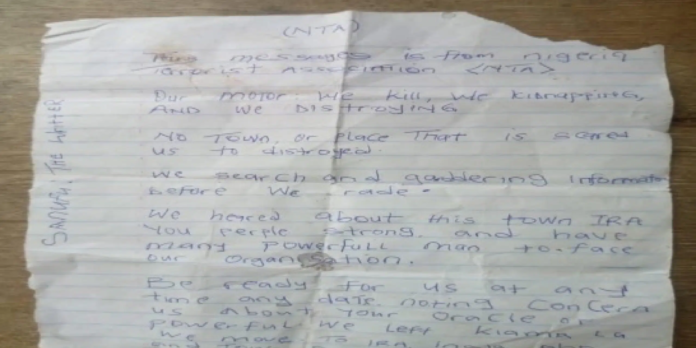 (NTA)
This messages is from nigeria
Terorist Association <NTA>.
Our motor: We Kill, We Kidnapping,
AND We DISTROYING
No Town, or place That is scered
us to distroyed.
We search and gaddering informat
before we rade.
We heared about this town IRA
You perple strong. and have
many powerfull man to-face
our organisation.
Be ready for us at any
time any date. noting Concern
us About your Oracle or
powerful we left Kiama
We move To IRA
SANUFU. THE